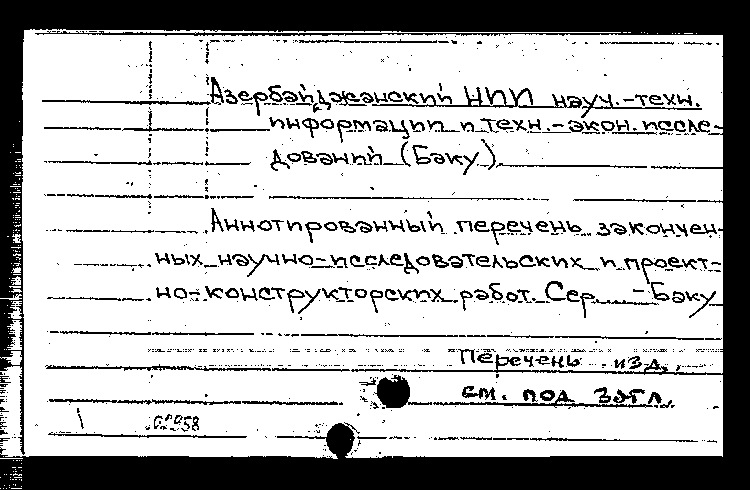 Азербайджанский НИИ науч.-техн.
информации и техн.-экон. иссле-
дований (Баку).
Аннотированный перечень закончен-
ных научно-исследовательских и проект-
но-конструкторских работ. Сер. - Баку
Перечень изд.
см. под загл.